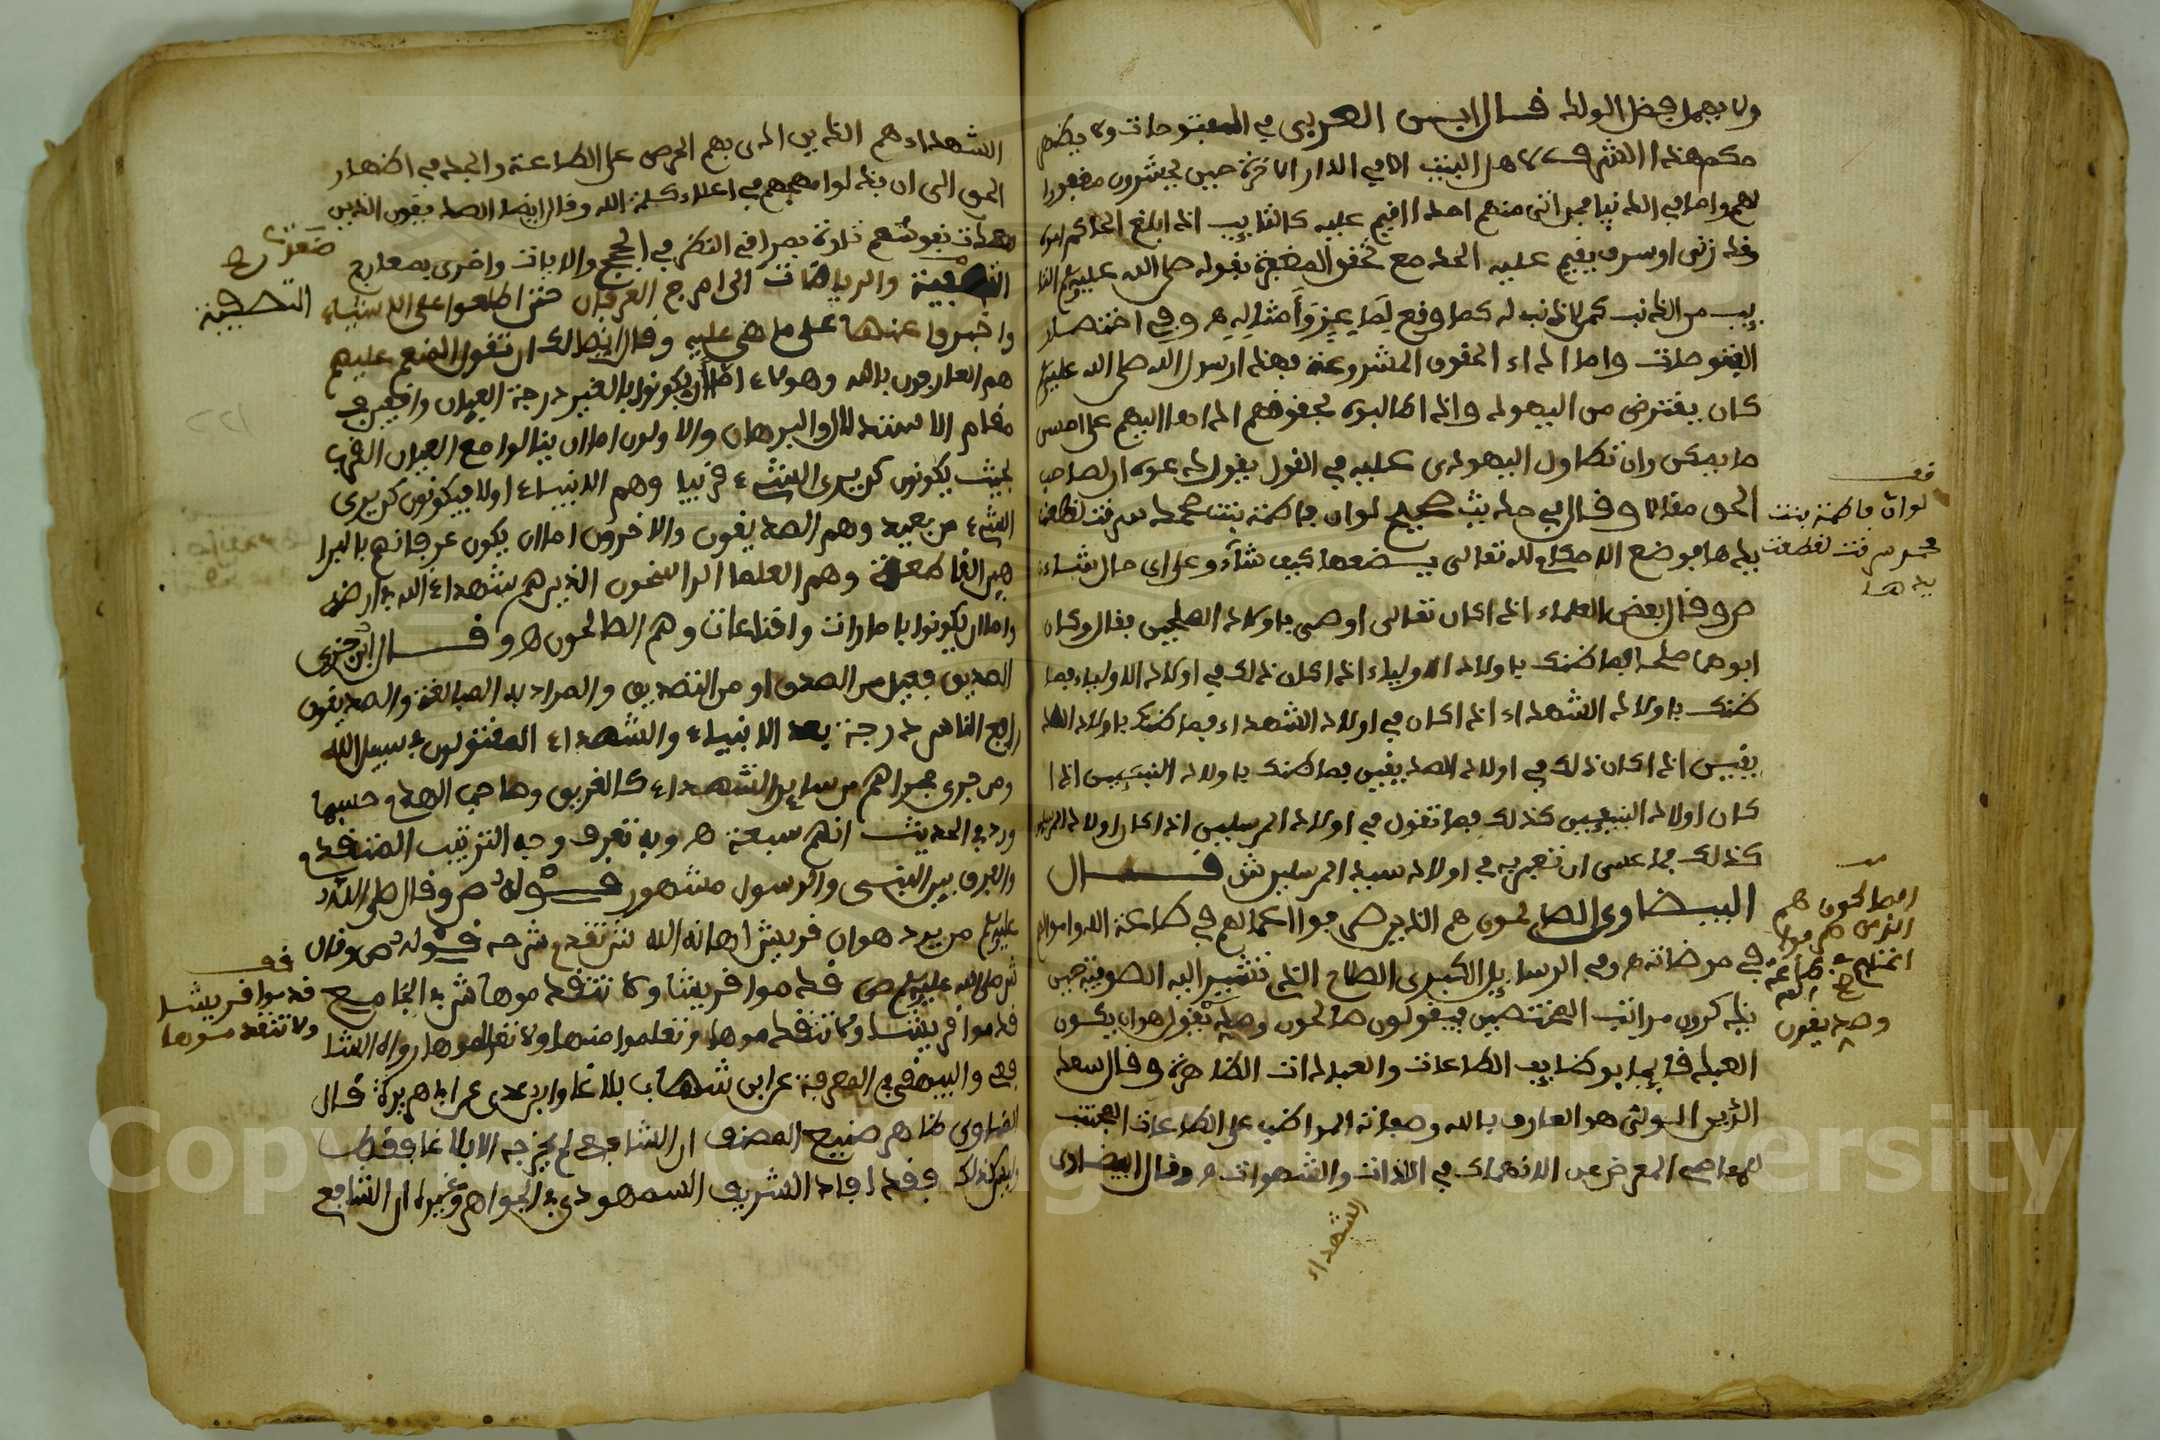 ولا يهمل فضل الولد قال ابن العربي في الفتوحات ولا يظهر
حكم هذا الشرف لاهل البيت الا في الدار الاخرة حين يحشرون مغفورا
لهم واما في الدنيا فمن اتى منهم احدا اقيم عليه كالتايب اذا ابلغ الحاكم امره
وقد زنى او سرق يقيم عليه الحد مع تحقق المغفرة بقوله صلى الله عليه وسلم التا
يب من الذنب كمن لا ذنب له كما وقع لماعز وامثاله ه وفي اختصار
الفتوحات واما اداء الحقوق المشروعة فهذا رسول الله صلى الله عليه وسلم
كان يقترض من اليهود واذا طالبوه بحقوقهم اداها اليهم على احسن
ما يمكن وان تطاول اليهودى عليه في القول يقول دعوه ان لصاحب
الحق مقالا وقال في حديث صحيح لو ان فاطمة بنت محمد سرقت لقطعت
يدها فوضع الاحكام لله تعالى يضعها كيف شاء وعلى اى حال شاء
ص وقال بعض العلماء اذا كان تعالى اوصى باولاد الصالحين فقال وكان
ابوهما صالحا فما ظنك باولاد الاولياء اذا كان ذلك في اولاد الاولياء فما
ظنك باولاد الشهداء اذا كان في اولاد الشهداء فما ظنك باولاد الصد
يقين اذا كان ذلك في اولاد الصديقين فما ظنك باولاد النبيين اذا
كان اولاد النبيين كذلك فما تقول في اولاد المرسلين اذا كان اولاد المرسلين
كذلك فما عسى ان تعبر به في اولاد سيد المرسلين ش قال
البيضاوى الصالحون هم الذين صرفوا اعمالهم في طاعة الله واموالهم
في مرضاته ه وفي الرسايل الكبرى الصلاح الذى تشير اليه الصوفية حين
يذكرون مراتب المختصين فيقولون صالحون وصديقون هو ان يكون
العبد قايما بوظايف الطاعات والعبادات الظاهرة وقال سعد
الدين الولى هو العارف بالله وصفاته المواظب على الطاعات المجتنب
للمعاصى المعرض عن الانهماك في اللذات والشهوات ه وقال البيضاوى
الشهداء
قف
لو ان فاطمة بنت
محمد سرقت لقطعت
يدها
الصالحون هم
الذين صرفوا
اعمالهم في طاعة
الله
وصديقون
الشهداء هم الذين ادى بهم الحرص على الطاعة والجد في اظهار
الحق الى ان بذلوا مهجهم في اعلاء كلمة الله وقال ايضا الصديقون الذين
صعدت نفوسهم تارة بمراقى النظر في الحجج والايات واخرى بمعارج
التصفية والرياضات الى اوج العرفان حتى اطلعوا على الاشياء
واخبروا عنها على ما هى عليه وقال ايضا لك ان تقول المنعم عليهم
هم العارفون بالله وهولاء اما ان يكونوا بالغين درجة العيان واقفين في
مقام الاستدلال والبرهان والاولون اما ان ينالوا مع العيان القرب
بحيث يكونون كمن يرى الشىء قريبا وهم الانبياء اولا فيكونون كمن يرى
الشىء من بعيد وهم الصديقون والاخرون اما ان يكون عرفانهم بالبرا
هين القاطعة وهم العلما الراسخون الذين هم شهداء الله في ارضه
واما ان يكونوا بامارات واقناعات وهم الصالحون ه وقال ابن جزى
الصديق فعيل من الصدق او من التصديق والمراد به المبالغة والصديقون
ارفع الناس درجة بعد الانبياء والشهداء المقتولون في سبيل الله
ومن جرى مجراهم من ساير الشهداء كالغريق وصاحب الهدم حسبما
ورد في الحديث انهم سبعة ه وبه تعرف وجه الترتيب المتقدم
والفرق بين النبى والرسول مشهور قوله ص وقال صلى الله
عليه وسلم من يرد هوان قريش اهانه الله ش تقدم شرحه قوله ص وقال
ش صلى الله عليه وسلم ص قدموا قريشا ولا تتقدموها ش في الجامع
قدموا قريشا ولا تتقدموها وتعلموا منها ولا تعلموها رواه الشا
فعى والبيهقى في المعرفة عن ابن شهاب بلاغا وابن عدى عن ابى هريرة قال
المناوى ظاهر صنيع المصنف ان الشافعى لم يخرجه الا بلاغا فقط
وليس كذلك فقد افاد الشريف السمهودى في الجواهر وغيره ان الشافعى
التصفية
قف
قدموا قريشا
ولا تتقدموها
Copyright © King Saud University